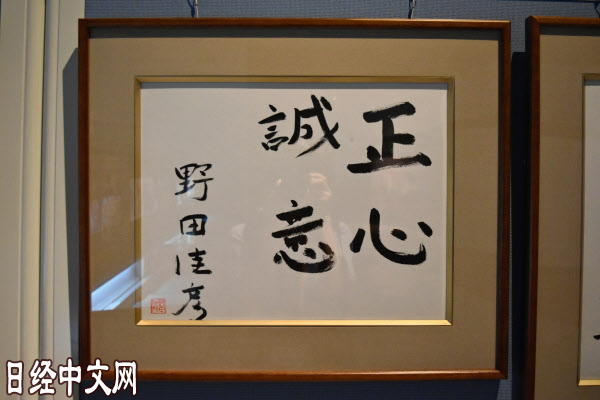 正心
誠意
野田佳彦
日经中文网